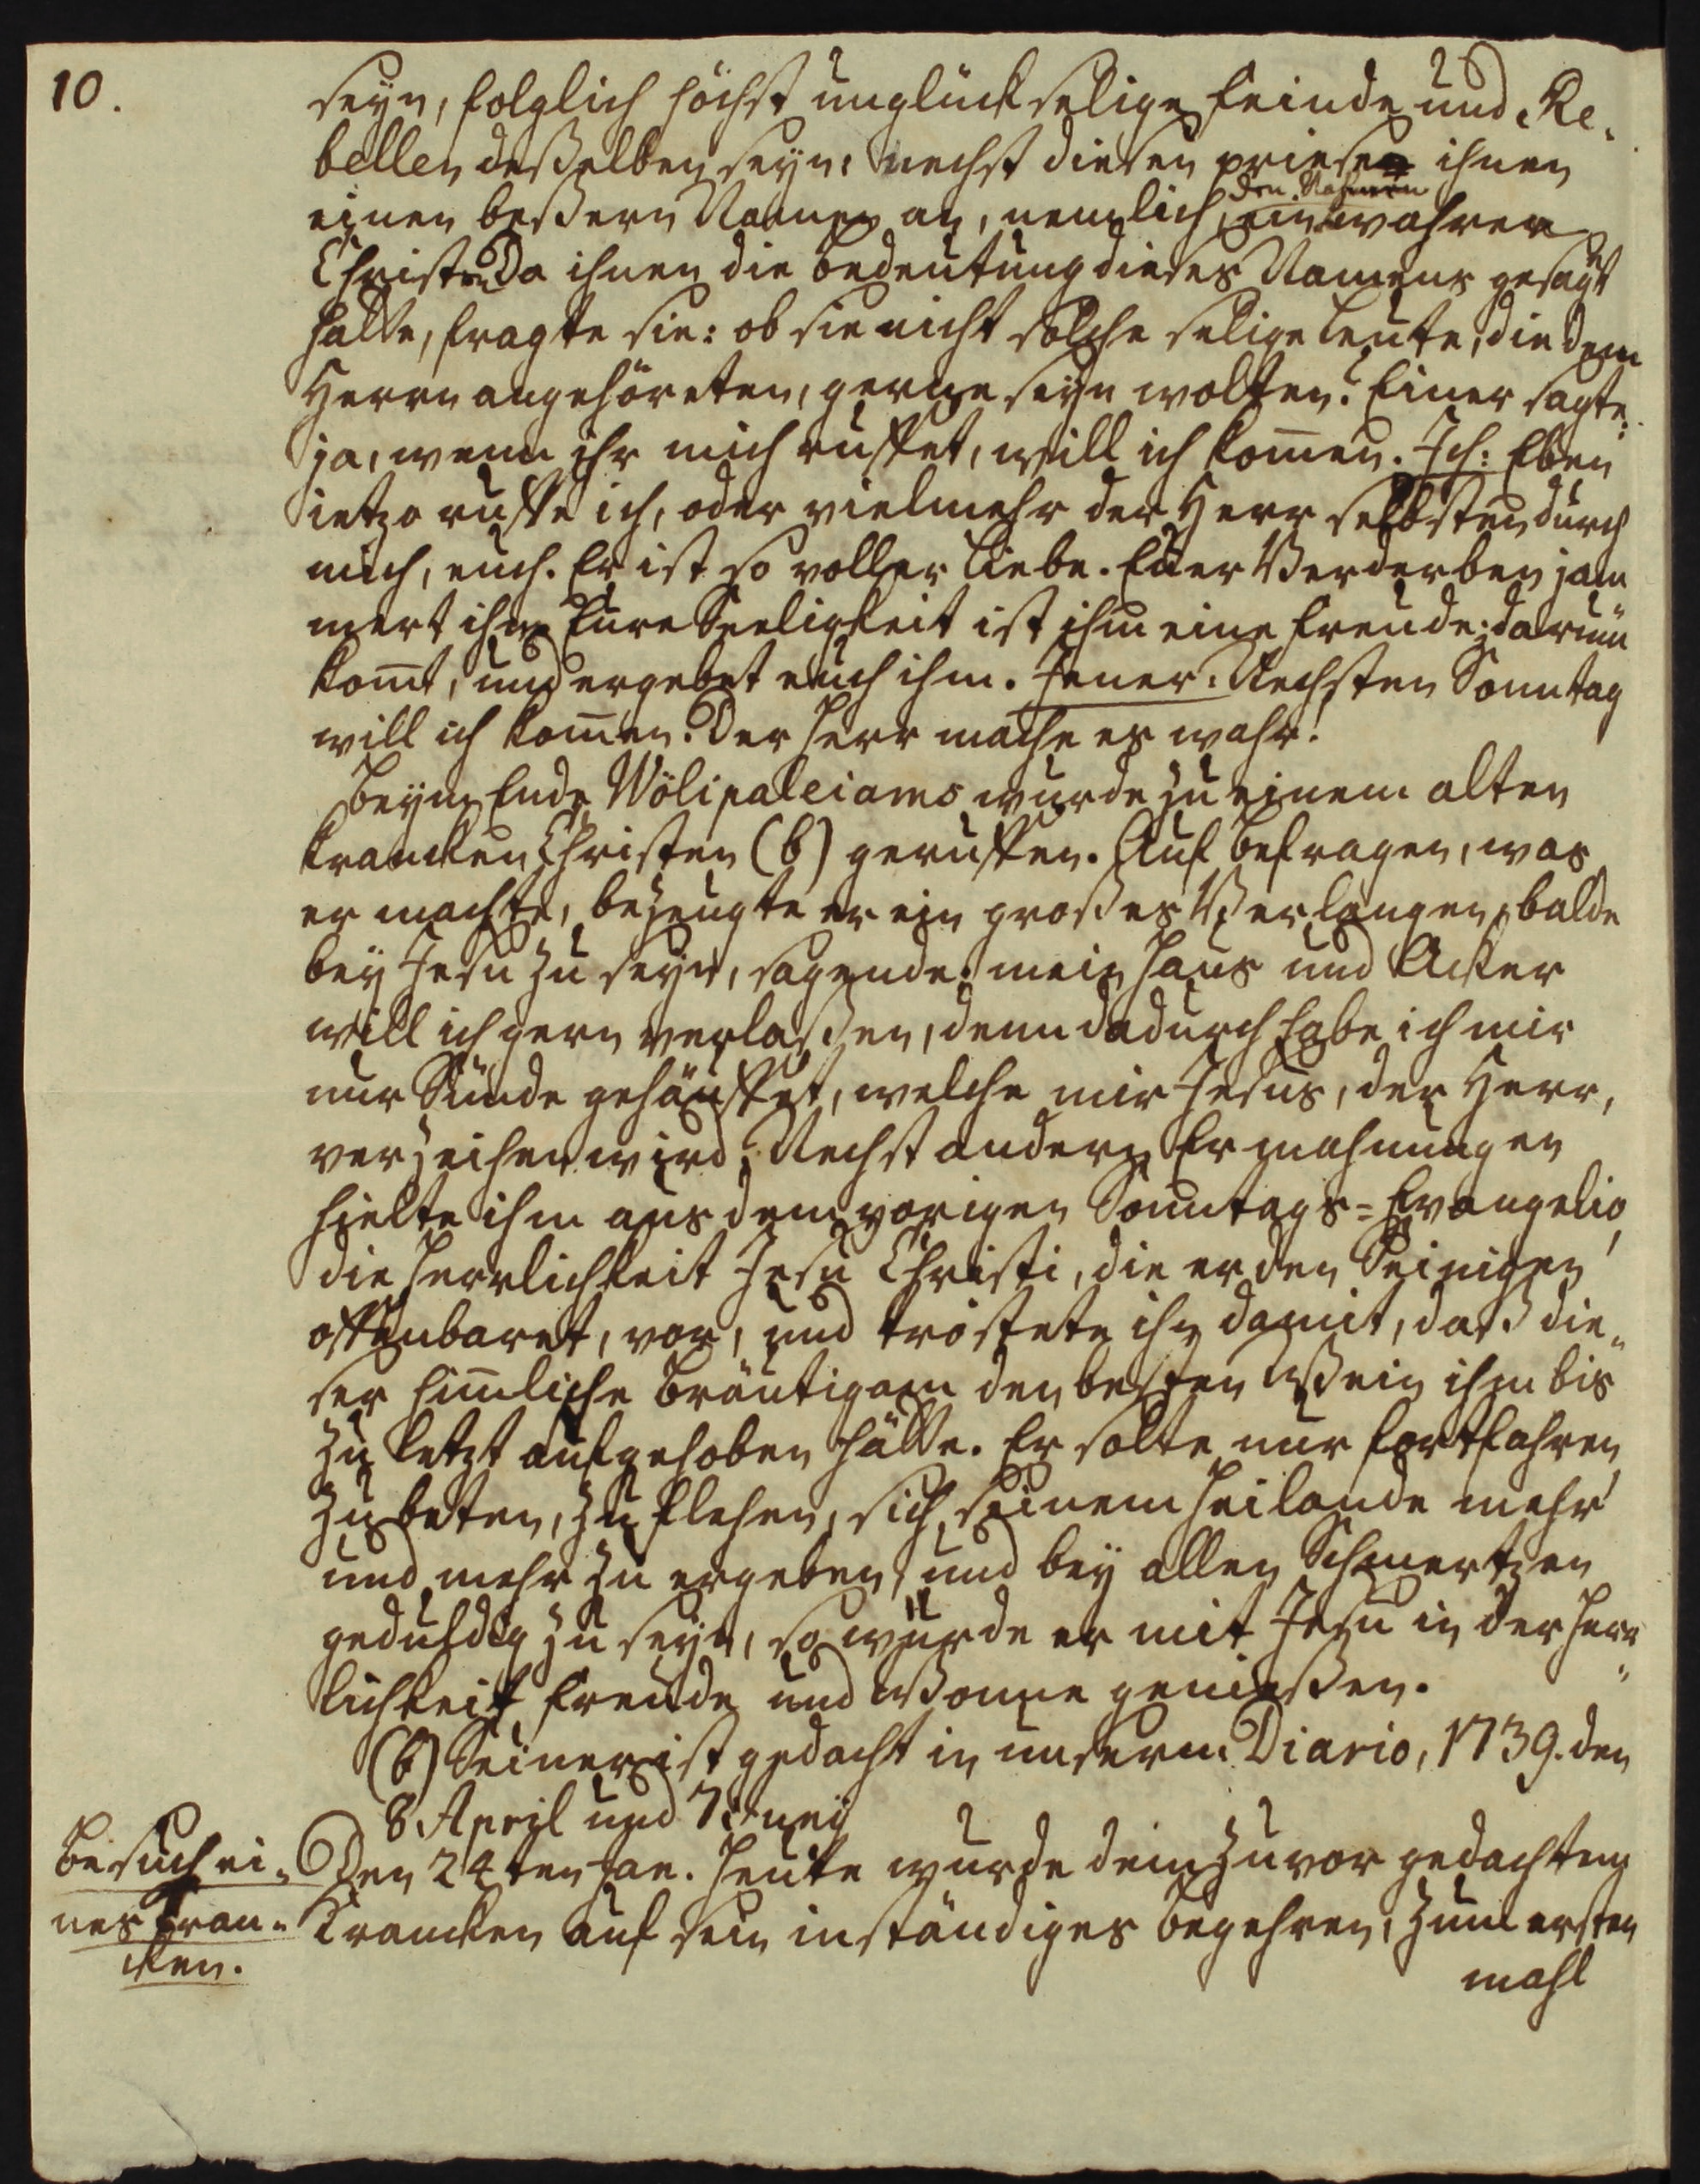 10.
seyn, folglich höchst unglückselige Feinde und Re-
bellen deßelben seyn: nechst diesen priese ihnen
einen beßern Namen an, nemlich den Nahmen wahrer
Christen. Da ihnen die Bedeutung dieses Namens gesagt
hatte, fragte sie: ob sie nicht solche selige Leute, die dem
Herrn angehöreten, gerne seyn wolten? Einer sagte:
ja, wenn ihr mich ruffet, will ich kom̄en. Ich: Eben
ietzo ruffe ich, oder vielmehr der Herr selbsten durch
mich, euch. Er ist so voller Liebe. Euer Verderben jam
mert ihn. Eure Seeligkeit ist ihm eine Freude: darum
kom̄t, und ergebet euch ihm. Jener: Nechsten Sonntag
will ich kom̄en. Der Herr mache es wahr!
Beym Ende Wölipaleiams wurde zu einem alten
krancken Christen (b) geruffen. Auf Befragen, was
er machte, bezeugte er ein großes Verlangen, balde
bey Jesu zu seyn, sagende: mein Haus und Acker
will ich gern verlaßen, denn dadurch habe ich mir
nur Sünde gehäuffet, welche mir Jesus, der Herr,
verzeihen wird. Nechst andern Ermahnungen
hielte ihm aus dem vorigen Sonntags-Evangelio,
die Herrlichkeit Jesu Christi, die er den Seinigen
offenbaret, vor, und tröstete ihn damit, daß die-
ser him̄lische Bräutigam den besten Wein ihm bis
zu letzt aufgehoben hätte. Er solte nur fortfahren
zu beten, zu flehen, sich seinem Heilande mehr
und mehr zu ergeben, und bey allen Schmertzen
geduldig zu seyn, so würde er mit Jesu in der Herr-
lichkeit Freude und Wonne genießen.
(b) Seiner ist gedacht in unserm Diario, 1739. den
8 April und 7 Junij
Besuch ei-
nes Kran-
cken.
Den 24ten Jan. Heute wurde dem zuvor gedachten
Krancken auf sein inständiges Begehren, zum ersten
mahl